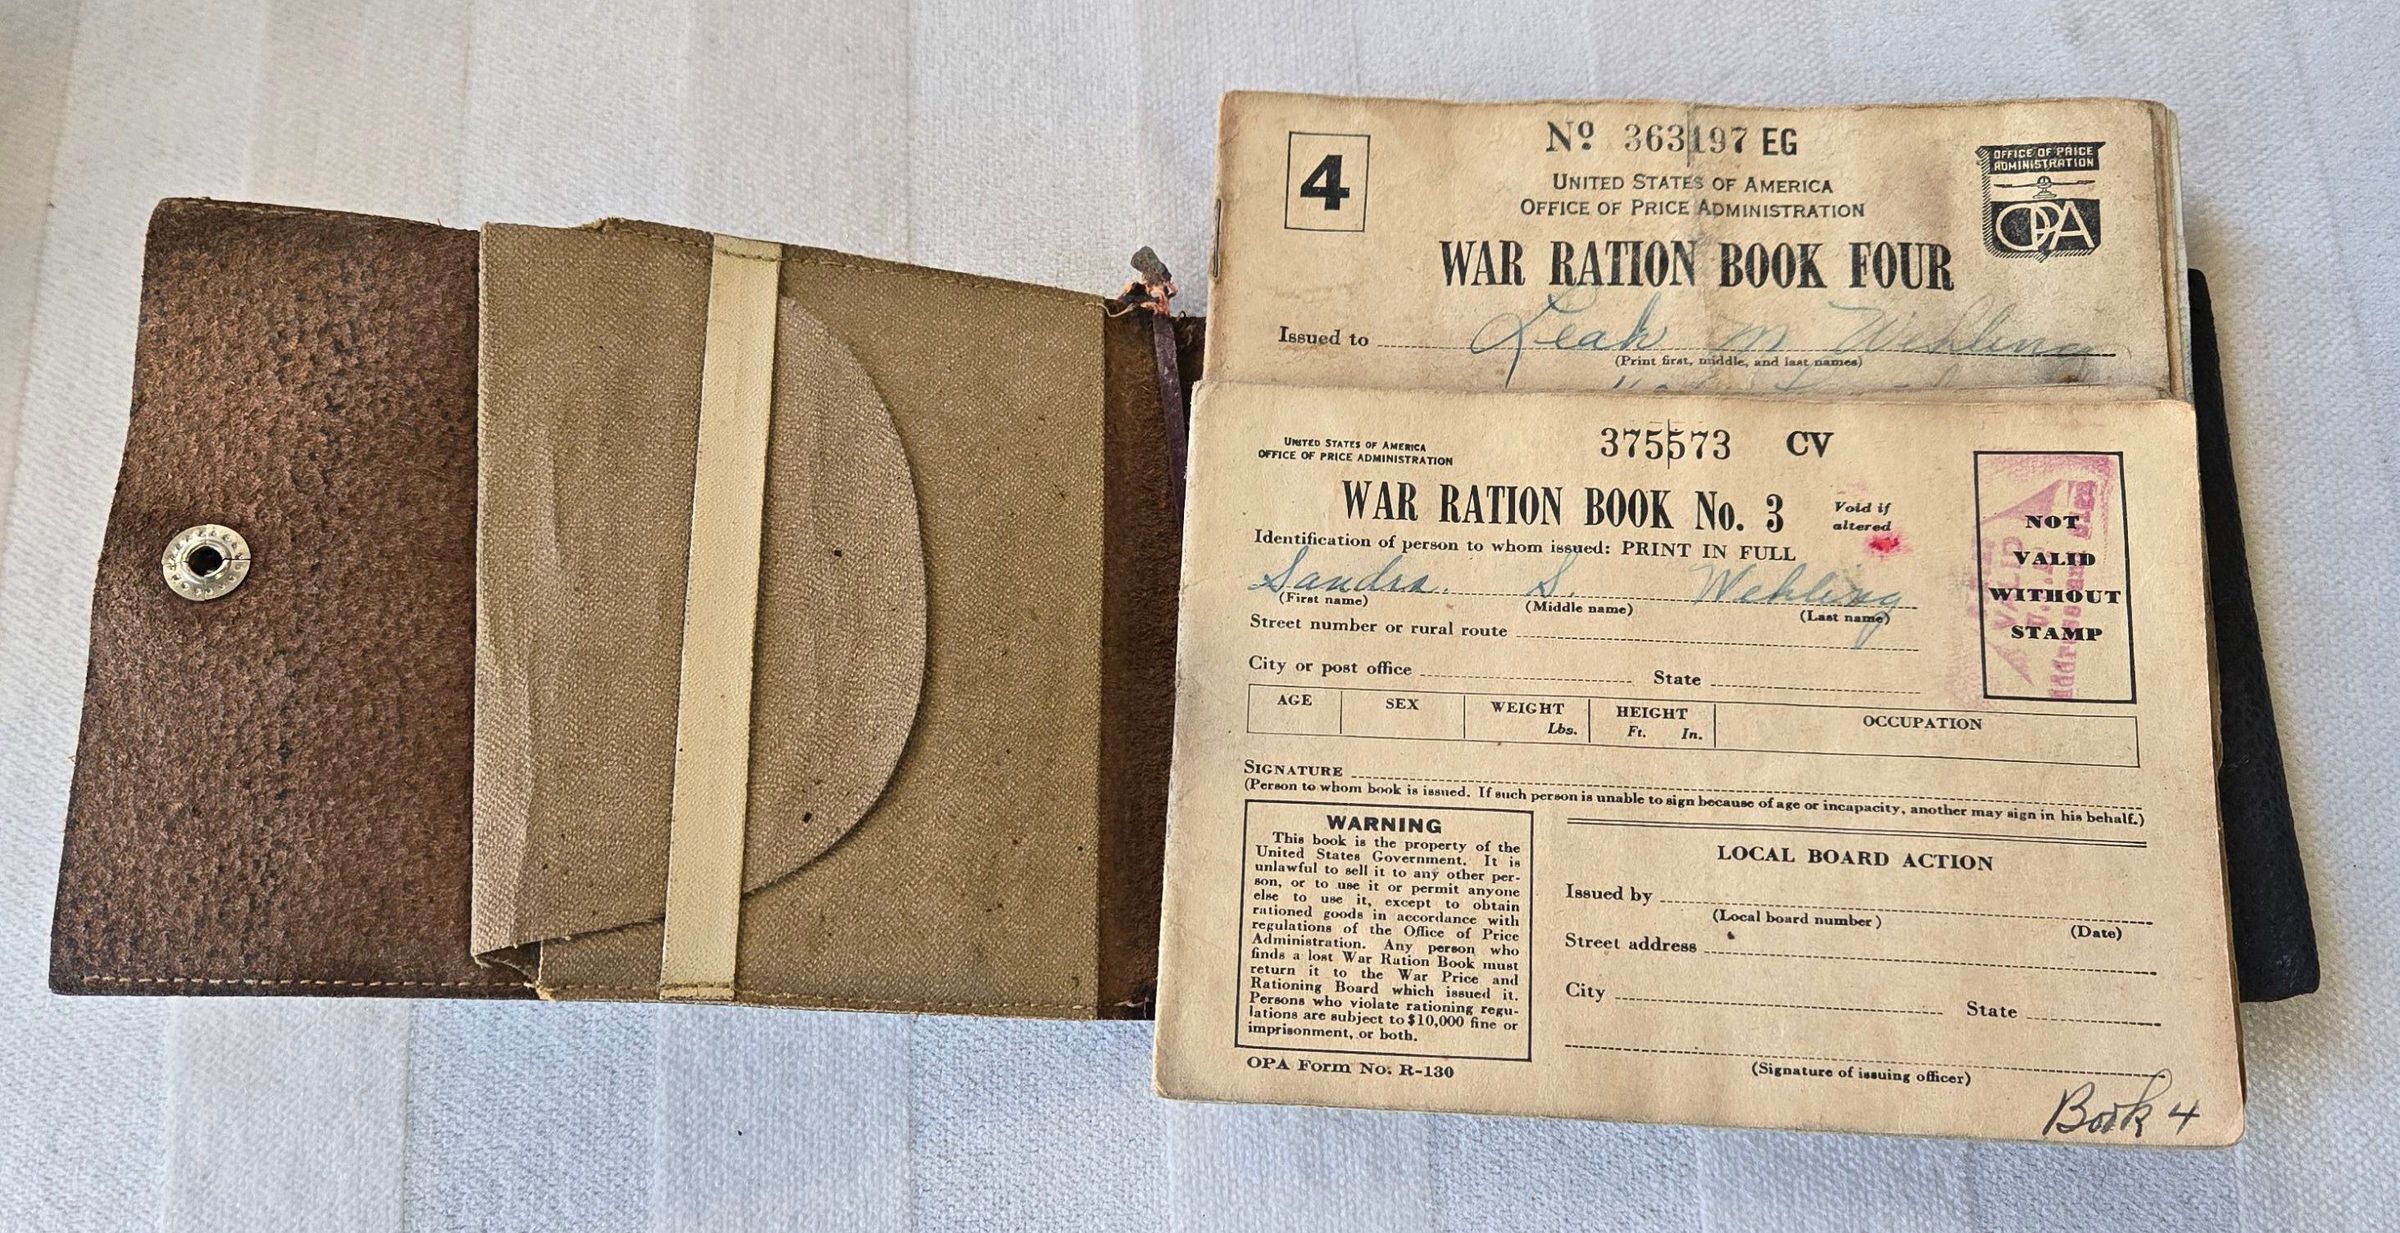 4
Nº 363197 EG
OFFICE OF PRICE
ADMINISTRATION
OPA
UNITED STATES OF AMERICA
OFFICE OF PRICE ADMINISTRATION
WAR RATION BOOK FOUR
Issued to Leah M Wehling
(Print first, middle, and last names)
375573 CV
UNITED STATES OF AMERICA
OFFICE OF PRICE ADMINISTRATION
WAR RATION BOOK No. 3
Void if
altered
NOT
VALID
WITHOUT
STAMP
Identification of person to whom issued: PRINT IN FULL
Sandra. S. Wehling
(First name) (Middle name) (Last name)
Street number or rural route
City or post office State
AGE SEX WEIGHT Lbs. HEIGHT Ft. In. OCCUPATION
SIGNATURE
(Person to whom book is issued. If such person is unable to sign because of age or incapacity, another may sign in his behalf.)
WARNING
This book is the property of the
United States Government. It is
unlawful to sell it to any other per-
son, or to use it or permit anyone
else to use it, except to obtain
rationed goods in accordance with
regulations of the Office of Price
Administration. Any person who
finds a lost War Ration Book must
return it to the War Price and
Rationing Board which issued it.
Persons who violate rationing regu-
lations are subject to $10,000 fine or
imprisonment, or both.
OPA Form No. R-130
LOCAL BOARD ACTION
Issued by
(Local board number) (Date)
Street address
City State
(Signature of issuing officer)
Book 4